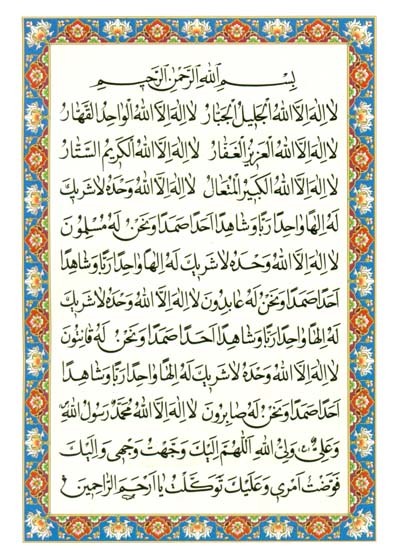 بِسْمِ اللهِ الرَّحْمٰنِ الرَّحِيمِ
لا اِلٰهَ اِلَّا اللهُ الْجَلِيلُ الْجَبَّارُ لا اِلٰهَ اِلَّا اللهُ الْوَاحِدُ الْقَهَّارُ
لا اِلٰهَ اِلَّا اللهُ الْعَزِيزُ الْغَفَّارُ لا اِلٰهَ اِلَّا اللهُ الْكَرِيمُ السَّتَّارُ
لا اِلٰهَ اِلَّا اللهُ الْكَبِيرُ الْمُتَعَالُ لا اِلٰهَ اِلَّا اللهُ وَحْدَهُ لا شَرِيكَ
لَهُ اِلٰهًا وَاحِدًا رَبًّا وَشَاهِدًا اَحَدًا صَمَدًا وَنَحْنُ لَهُ مُسْلِمُونَ
لا اِلٰهَ اِلَّا اللهُ وَحْدَهُ لا شَرِيكَ لَهُ اِلٰهًا وَاحِدًا رَبًّا وَشَاهِدًا
اَحَدًا صَمَدًا وَنَحْنُ لَهُ عَابِدُونَ لا اِلٰهَ اِلَّا اللهُ وَحْدَهُ لا شَرِيكَ
لَهُ اِلٰهًا وَاحِدًا رَبًّا وَشَاهِدًا اَحَدًا صَمَدًا وَنَحْنُ لَهُ قَانِتُونَ
لا اِلٰهَ اِلَّا اللهُ وَحْدَهُ لا شَرِيكَ لَهُ اِلٰهًا وَاحِدًا رَبًّا وَشَاهِدًا
اَحَدًا صَمَدًا وَنَحْنُ لَهُ صَابِرُونَ لا اِلٰهَ اِلَّا اللهُ مُحَمَّدٌ رَسُولُ اللهِ
وَعَلِيٌّ وَلِيُّ اللهِ اَللّٰهُمَّ اِلَيْكَ وَجَّهْتُ وَجْهِي وَاِلَيْكَ
فَوَّضْتُ اَمْرِي وَعَلَيْكَ تَوَكَّلْتُ يَا اَرْحَمَ الرَّاحِمِينَ